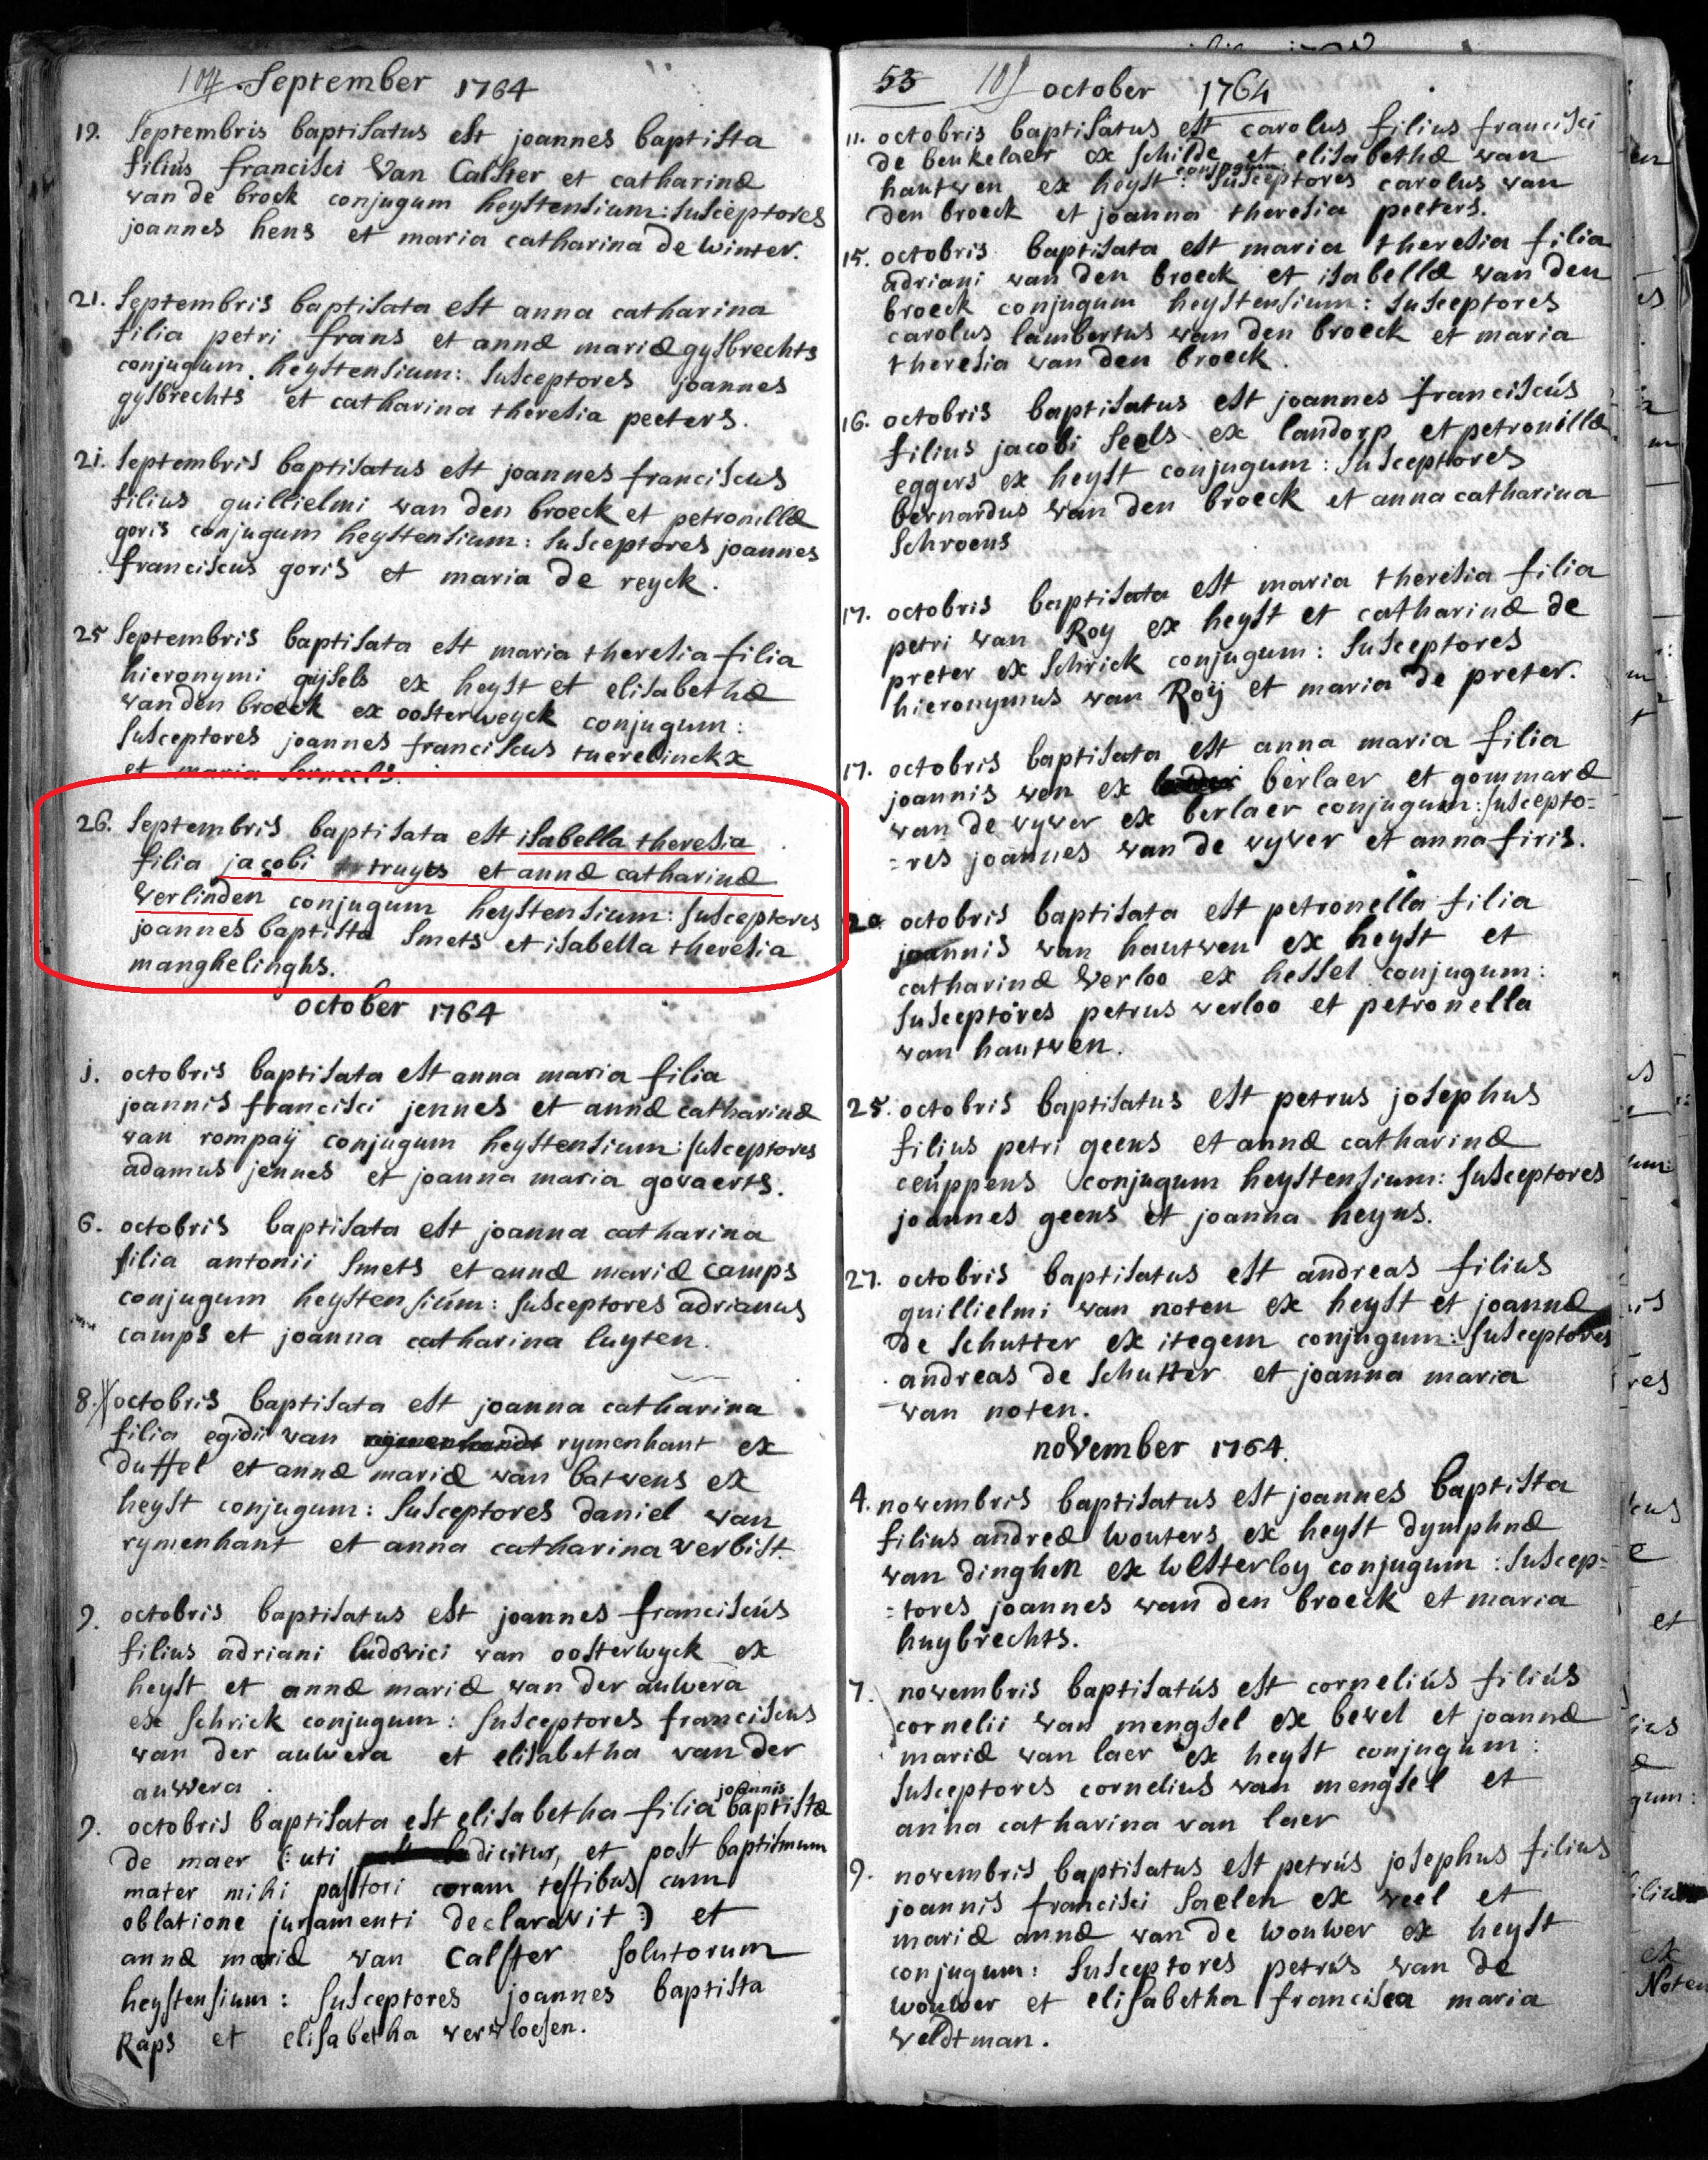 104 September 1764
19. Septembris baptisatus est joannes baptista
filius francisci Van Calster et catharinæ
van de broek conjugum heystensium: susceptores
joannes hens et maria catharina de winter.
21. Septembris baptisata est anna catharina
filia petri frans et annæ mariæ gysbrechts
conjugum heystensium: susceptores joannes
gysbrechts et catharina theresia peeters.
21. Septembris baptisatus est joannes franciscus
filius guillielmi van den broeck et petronillæ
goris conjugum heystensium: susceptores joannes
franciscus goris et maria de reyck.
25 Septembris baptisata est maria theresia filia
hieronymi gijsels ex heyst et elisabethæ
van den broeck ex oosterweyck conjugum:
susceptores joannes franciscus tuerelinckx
et maria
26. Septembris baptisata est isabella theresia
filia jacobi truyts et annæ catharinæ
verlinden conjugum heystensium: susceptores
joannes baptista Smets et isabella theresia
manghelinghs.
october 1764
j. octobris baptisata est anna maria filia
joannis francisci jennes et annæ catharinæ
van rompaij conjugum heystensium: susceptores
adamus jennes et joanna maria govaerts.
6. octobris baptisata est joanna catharina
filia antonii Smets et annæ mariæ camps
conjugum heystensium: susceptores adrianus
camps et joanna catharina luyten.
8. octobris baptisata est joanna catharina
filia egidii van rymenhant ex
duffel et annæ mariæ van batwens ex
heyst conjugum: susceptores daniel van
rymenhant et anna catharina verbist.
9. octobris baptisatus est joannes franciscús
filius adriani ludovici van oosterwyck ex
heyst et annæ mariæ van der auwera
ex schrick conjugum: susceptores franciscus
van der auwera et elisabetha van der
auwera.
9. octobris baptisata est elisabetha filia joannis baptistæ
de maer (: uti dicitur, et post baptismum
mater mihi pastori coram testibus cum
oblatione juramenti declaravit :) et
annæ mariæ van Calster solutorum
heystensium: susceptores joannes baptista
Raps et elisabetha verwloesen.
53 105 october 1764
11. octobris baptisatus est carolus filius francisci
de beukelaer ex schilde et elisabethæ van
hautven ex heyst conjugum: susceptores carolus van
den broeck et joanna theresia peeters.
15. octobris baptisata est maria theresia filia
adriani van den broeck et isabellæ van den
broeck conjugum heystensium: susceptores
carolus lambertus van den broeck et maria
theresia van den broeck.
16. octobris baptisatus est joannes franciscús
filius jacobi Seels ex landorp et petronillæ
eggers ex heyst conjugum: susceptores
bernardus van den broeck et anna catharina
Schroens
17. octobris baptisata est maria theresia filia
petri van Roy ex heyst et catharinæ de
preter ex schrick conjugum: susceptores
hieronymus van Roij et maria de preter.
17. octobris baptisata est anna maria filia
joannis wen ex berlaer et gommaræ
van de vyver ex berlaer conjugum: suscepto=
=res joannes van de vyver et anna firis.
20 octobris baptisata est petronella filia
joannis van hautven ex heyst et
catharinæ verloo ex hessel conjugum:
susceptores petrus verloo et petronella
van hautven.
25. octobris baptisatus est petrus josephus
filius petri geens et annæ catharinæ
ceuppens conjugum heystensium: susceptores
joannes geens et joanna heyns.
27. octobris baptisatus est andreas filius
guillielmi van noten ex heyst et joannæ
de schutter ex itegem conjugum: susceptores
andreas de schutter et joanna maria
van noten.
november 1764.
4. novembris baptisatus est joannes baptista
filius andreæ wouters ex heyst dymphnæ
van dinghen ex westerloy conjugum: suscep=
=tores joannes van den broeck et maria
huybrechts.
7. novembris baptisatús est corneliús filiús
cornelii van mengsel ex bevel et joannæ
mariæ van laer ex heyst conjugum:
susceptores cornelius van mengsel et
anna catharina van laer
9. novembris baptisatus est petrús josephus filius
joannis francisci Saelen ex veel et
mariæ annæ van de wouwer ex heyst
conjugum: susceptores petrús van de
wouwer et elisabetha francisca maria
veldtman.